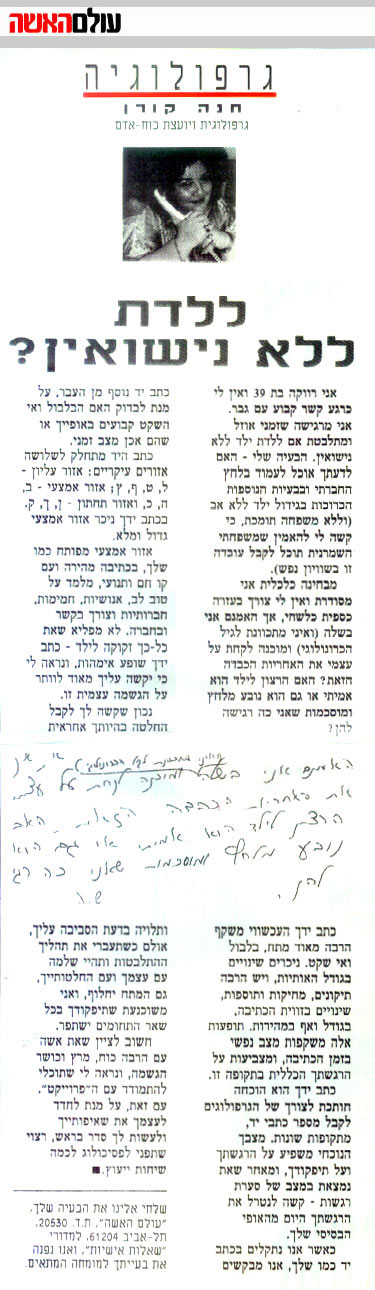 עולם האשה
גרפולוגיה
חנה קורן
גרפולוגית ויועצת כוח-אדם
ללדת
ללא נישואין?
אני רווקה בת 39 ואין לי
כרגע קשר קבוע עם גבר.
אני מרגישה שזמני אוזל
ומתלבטת אם ללדת ילד ללא
נישואין. הבעיה שלי - האם
לדעתך אוכל לעמוד בלחץ
החברתי ובבעיות הנוספות
הכרוכות בגידול ילד ללא אב
(וללא משפחה תומכת, כי
קשה לי להאמין שמשפחתי
השמרנית תוכל לקבל עובדה
זו בשוויון נפש).
מבחינה כלכלית אני
מסודרת ואין לי צורך בעזרה
כספית כלשהי, אך האמנם אני
בשלה (ואיני מתכוונת לגיל
הכרונולוגי) ומוכנה לקחת על
עצמי את האחריות הכבדה
הזאת? האם הרצון לילד הוא
אמיתי או גם הוא נובע מלחץ
ומוסכמות שאני כה רגישה
להן?
כתב יד נוסף מן העבר, על
מנת לבדוק האם הבלבול ואי
השקט קבועים באופייך או
שהם אכן מצב זמני.
כתב היד מתחלק לשלושה
אזורים עיקריים: אזור עליון -
ל, ט, ף, ץ; אזור אמצעי - ב,
ה, כ, ואזור תחתון - ן, ך, ק.
בכתב ידך ניכר אזור אמצעי
גדול ומלא.
אזור אמצעי מפותח כמו
שלך, בכתיבה מהירה ועם
קו חם ותנועי, מלמד על
טוב לב, אנושיות, חמימות,
חברותיות וצורך בקשר
ובחברה. לא מפליא שאת
כל-כך זקוקה לילד - כתב
ידך שופע אימהות, ונראה לי
כי יקשה עליך מאוד לוותר
על הגשמה עצמית זו.
נכון שקשה לך לקבל
החלטה בהיותך אחראית
האמנם אני בשלה ומוכנה לקחת על עצמי
את האחריות הכבדה הזאת האם
הרצון לילד הוא אמיתי או גם הוא
נובע מלחץ ומוסכמות שאני כה רגי
להן
כתב ידך העכשווי משקף
הרבה מאוד מתח, בלבול
ואי שקט. ניכרים שינויים
בגודל האותיות, ויש הרבה
תיקונים, מחיקות ותוספות,
שינויים בזווית הכתיבה,
בגודל ואף במהירות. תופעות
אלה משקפות מצב נפשי
בזמן הכתיבה, ומצביעות על
הרגשתך הכללית בתקופה זו.
כתב ידך הוא הוכחה
חותכת לצורך של הגרפולוגים
לקבל מספר כתבי יד,
מתקופות שונות. מצבך
הנוכחי משפיע על הרגשתך
ועל תיפקודך, ומאחר שאת
נמצאת במצב של סערת
רגשות - קשה לנטרל את
הרגשתך היום מהאופי
הבסיסי שלך.
כאשר אנו נתקלים בכתב
יד כמו שלך, אנו מבקשים
ותלויה בדעת הסביבה עליך,
אולם כשתעברי את תהליך
ההתלבטות ותהיי שלמה
עם עצמך ועם החלטותייך,
גם המתח יחלוף, ואני
משוכנעת שתיפקודך בכל
שאר התחומים ישתפר.
חשוב לציין שאת אשה
עם הרבה כוח, מרץ וכושר
הגשמה, ונראה לי שתוכלי
להתמודד עם ה"פרוייקט".
עם זאת, על מנת לחדד
לעצמך את שאיפותייך
ולעשות לך סדר בראש, רצוי
שתפני לפסיכולוג לכמה
שיחות ייעוץ.
שלחי אלינו את הבעיה שלך,
"עולם האשה", ת.ד. 20530,
תל-אביב 61204, למדורי
"שאלות אישיות", ואנו נפנה
את בעייתך למומחה המתאים.